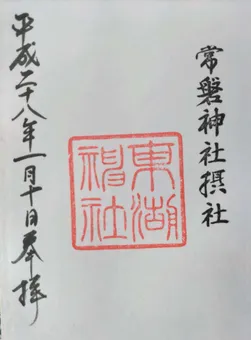 常磐神社摂社
東湖
神社
平成二十八年一月十日奉拝